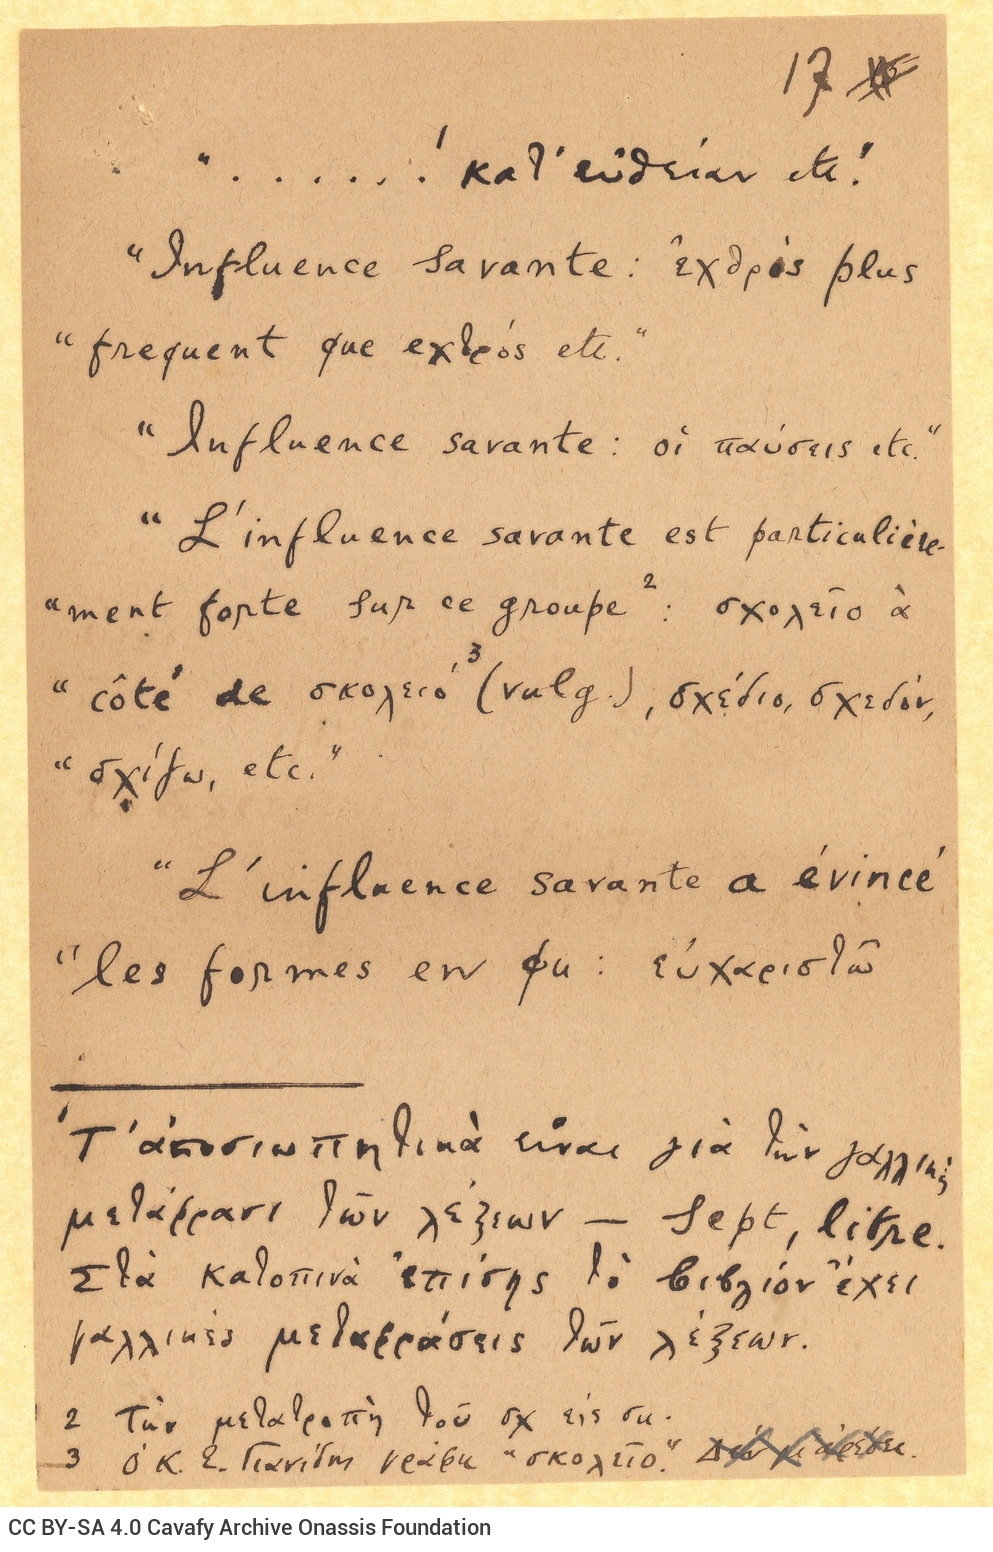 17
“ . . . . . . ¹ κατ’ εὐθεῖαν etc!
“Influence savante: ἐχθρός plus
“frequent que εχτρός etc.”
“Influence savante: οἱ παύσεις etc.”
“L’influence savante est particulière-
“ment forte sur ce groupe²: σχολεῖο à
“côté de σκολειό³ (vulg.), σχέδιο, σχεδόν,
“σχίζω, etc.”
“L’influence savante a évincé
“les formes en φκ: εὐχαριστῶ
¹ Τ’ ἀποσιωπητικὰ εἶναι γιὰ τὴν γαλλικὴ
μετάφρασι τῶν λέξεων — Sept, litre.
Στὰ κατοπινὰ ἐπίσης τὸ βιβλίον ἔχει
γαλλικὲς μεταφράσεις τῶν λέξεων.
2 Τὴν μετατροπὴ τοῦ σχ εἰς σκ.
3 Ὁ Κ. Ε. Γιανίδης γράφει “σκολεῖο.”
CC BY-SA 4.0 Cavafy Archive Onassis Foundation